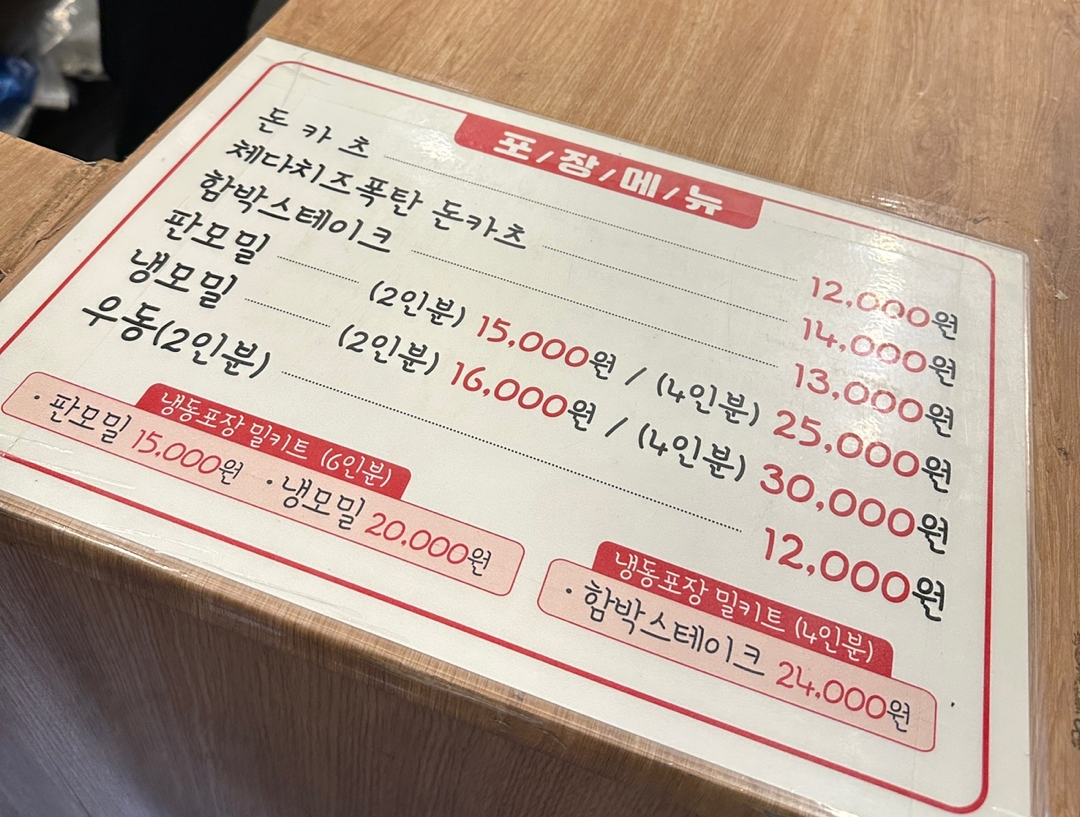 포/장/메/뉴
돈 카 츠 12,000원
체다치즈폭탄 돈카츠 14,000원
함박스테이크 13,000원
판모밀 (2인분) 15,000원 / (4인분) 25,000원
냉모밀 (2인분) 16,000원 / (4인분) 30,000원
우동(2인분) 12,000원
냉동포장 밀키트 (6인분)
· 판모밀 15,000원 · 냉모밀 20,000원
냉동포장 밀키트 (4인분)
· 함박스테이크 24,000원